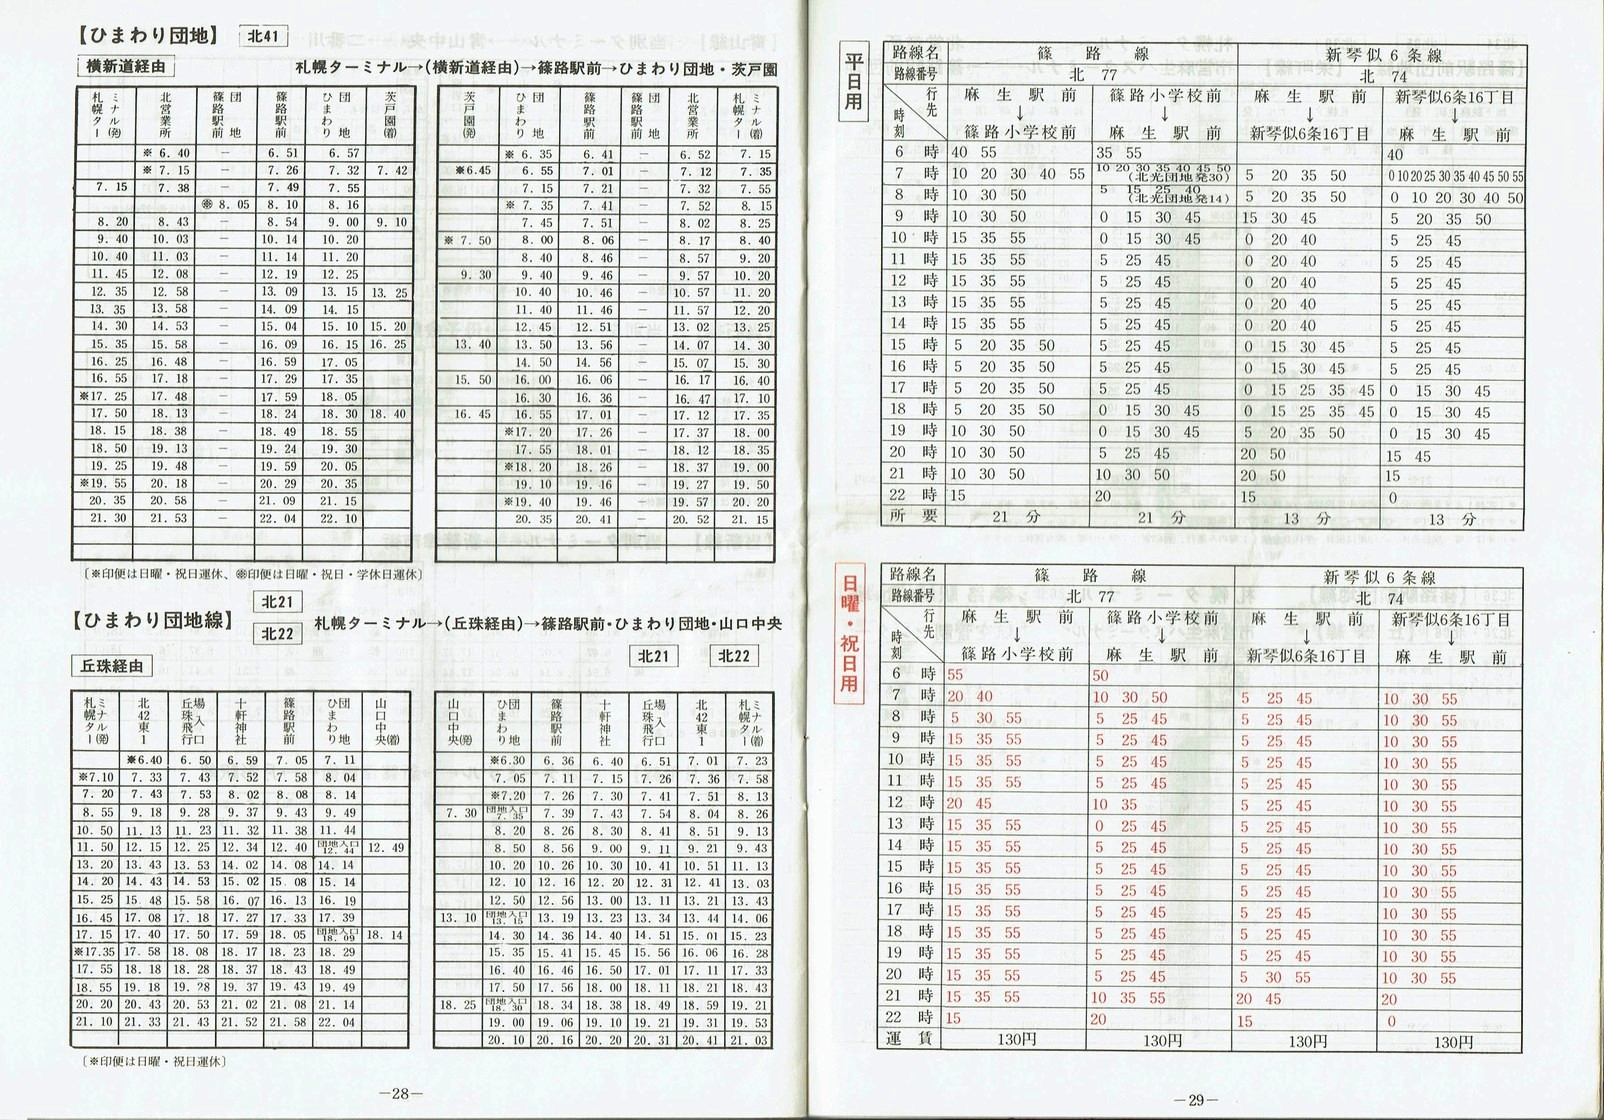 【ひまわり団地】 北41
横新道経由 札幌ターミナル→(横新道経由)→篠路駅前→ひまわり団地・茨戸園
札幌ターミナル(発) 北営業所 篠路駅前団地 篠路駅前 ひまわり団地 茨戸園(着)
※ 6.40 — 6.51 6.57
※ 7.15 — 7.26 7.32 7.42
7.15 7.38 — 7.49 7.55
※ 8.05 8.10 8.16
8.20 8.43 — 8.54 9.00 9.10
9.40 10.03 — 10.14 10.20
10.40 11.03 — 11.14 11.20
11.45 12.08 — 12.19 12.25
12.35 12.58 — 13.09 13.15 13.25
13.35 13.58 — 14.09 14.15
14.30 14.53 — 15.04 15.10 15.20
15.35 15.58 — 16.09 16.15 16.25
16.25 16.48 — 16.59 17.05
16.55 17.18 — 17.29 17.35
※17.25 17.48 — 17.59 18.05
17.50 18.13 — 18.24 18.30 18.40
18.15 18.38 — 18.49 18.55
18.50 19.13 — 19.24 19.30
19.25 19.48 — 19.59 20.05
※19.55 20.18 — 20.29 20.35
20.35 20.58 — 21.09 21.15
21.30 21.53 — 22.04 22.10
茨戸園(発) ひまわり団地 篠路駅前 篠路駅前団地 北営業所 札幌ターミナル(着)
※ 6.35 6.41 — 6.52 7.15
※6.45 6.55 7.01 — 7.12 7.35
7.15 7.21 — 7.32 7.55
※ 7.35 7.41 — 7.52 8.15
7.45 7.51 — 8.02 8.25
※ 7.50 8.00 8.06 — 8.17 8.40
8.40 8.46 — 8.57 9.20
9.30 9.40 9.46 — 9.57 10.20
10.40 10.46 — 10.57 11.20
11.40 11.46 — 11.57 12.20
12.45 12.51 — 13.02 13.25
13.40 13.50 13.56 — 14.07 14.30
14.50 14.56 — 15.07 15.30
15.50 16.00 16.06 — 16.17 16.40
16.30 16.36 — 16.47 17.10
16.45 16.55 17.01 — 17.12 17.35
※17.20 17.26 — 17.37 18.00
17.55 18.01 — 18.12 18.35
※18.20 18.26 — 18.37 19.00
19.10 19.16 — 19.27 19.50
※19.40 19.46 — 19.57 20.20
20.35 20.41 — 20.52 21.15
〔※印便は日曜・祝日運休、※印便は日曜・祝日・学休日運休〕
【ひまわり団地線】 北21 北22 札幌ターミナル→(丘珠経由)→篠路駅前・ひまわり団地・山口中央
北21 北22
丘珠経由
札幌ターミナル(発) 北42東1 丘珠飛行場入口 十軒神社 篠路駅前 ひまわり団地 山口中央(着)
※6.40 6.50 6.59 7.05 7.11
※7.10 7.33 7.43 7.52 7.58 8.04
7.20 7.43 7.53 8.02 8.08 8.14
8.55 9.18 9.28 9.37 9.43 9.49
10.50 11.13 11.23 11.32 11.38 11.44
11.50 12.15 12.25 12.34 12.40 団地入口12.44 12.49
13.20 13.43 13.53 14.02 14.08 14.14
14.20 14.43 14.53 15.02 15.08 15.14
15.25 15.48 15.58 16.07 16.13 16.19
16.45 17.08 17.18 17.27 17.33 17.39
17.15 17.40 17.50 17.59 18.05 団地入口18.09 18.14
※17.35 17.58 18.08 18.17 18.23 18.29
17.55 18.18 18.28 18.37 18.43 18.49
18.55 19.18 19.28 19.37 19.43 19.49
20.20 20.43 20.53 21.02 21.08 21.14
21.10 21.33 21.43 21.52 21.58 22.04
山口中央(発) ひまわり団地 篠路駅前 十軒神社 丘珠飛行場入口 北42東1 札幌ターミナル(着)
※6.30 6.36 6.40 6.51 7.01 7.23
7.05 7.11 7.15 7.26 7.36 7.58
※7.20 7.26 7.30 7.41 7.51 8.13
7.30 団地入口7.35 7.39 7.43 7.54 8.04 8.26
8.20 8.26 8.30 8.41 8.51 9.13
8.50 8.56 9.00 9.11 9.21 9.43
10.20 10.26 10.30 10.41 10.51 11.13
12.10 12.16 12.20 12.31 12.41 13.03
12.50 12.56 13.00 13.11 13.21 13.43
13.10 団地入口13.15 13.19 13.23 13.34 13.44 14.06
14.30 14.36 14.40 14.51 15.01 15.23
15.35 15.41 15.45 15.56 16.06 16.28
16.40 16.46 16.50 17.01 17.11 17.33
17.50 17.56 18.00 18.11 18.21 18.43
18.25 団地入口18.30 18.34 18.38 18.49 18.59 19.21
19.00 19.06 19.10 19.21 19.31 19.53
20.10 20.16 20.20 20.31 20.41 21.03
〔※印便は日曜・祝日運休〕
—28—
平日用
路線名 篠路線 新琴似6条線
路線番号 北77 北74
行先 時刻 麻生駅前↓篠路小学校前 篠路小学校前↓麻生駅前 麻生駅前↓新琴似6条16丁目 新琴似6条16丁目↓麻生駅前
6時 40 55 35 55 40
7時 10 20 30 40 55 10 20 30 35 40 45 50 (北光団地発30) 5 20 35 50 0 10 20 25 30 35 40 45 50 55
8時 10 30 50 5 15 25 40 (北光団地発14) 5 20 35 50 0 10 20 30 40 50
9時 10 30 50 0 15 30 45 15 30 45 5 20 35 50
10時 15 35 55 0 15 30 45 0 20 40 5 25 45
11時 15 35 55 5 25 45 0 20 40 5 25 45
12時 15 35 55 5 25 45 0 20 40 5 25 45
13時 15 35 55 5 25 45 0 20 40 5 25 45
14時 15 35 55 5 25 45 0 20 40 5 25 45
15時 5 20 35 50 5 25 45 0 15 30 45 5 25 45
16時 5 20 35 50 5 25 45 0 15 30 45 5 25 45
17時 5 20 35 50 5 25 45 0 15 25 35 45 0 15 30 45
18時 5 20 35 50 0 15 30 45 0 15 25 35 45 0 15 30 45
19時 10 30 50 0 15 30 45 5 20 35 50 0 15 30 45
20時 10 30 50 5 25 45 20 50 15 45
21時 10 30 50 10 30 50 20 50 15
22時 15 20 15 0
所要 21分 21分 13分 13分
日曜・祝日用
路線名 篠路線 新琴似6条線
路線番号 北77 北74
行先 時刻 麻生駅前↓篠路小学校前 篠路小学校前↓麻生駅前 麻生駅前↓新琴似6条16丁目 新琴似6条16丁目↓麻生駅前
6時 55 50
7時 20 40 10 30 50 5 25 45 10 30 55
8時 5 30 55 5 25 45 5 25 45 10 30 55
9時 15 35 55 5 25 45 5 25 45 10 30 55
10時 15 35 55 5 25 45 5 25 45 10 30 55
11時 15 35 55 5 25 45 5 25 45 10 30 55
12時 20 45 10 35 5 25 45 10 30 55
13時 15 35 55 0 25 45 5 25 45 10 30 55
14時 15 35 55 5 25 45 5 25 45 10 30 55
15時 15 35 55 5 25 45 5 25 45 10 30 55
16時 15 35 55 5 25 45 5 25 45 10 30 55
17時 15 35 55 5 25 45 5 25 45 10 30 55
18時 15 35 55 5 25 45 5 25 45 10 30 55
19時 15 35 55 5 25 45 5 25 45 10 30 55
20時 15 35 55 5 25 45 5 30 55 10 30 55
21時 15 35 55 10 35 55 20 45 20
22時 15 20 15 0
運賃 130円 130円 130円 130円
—29—